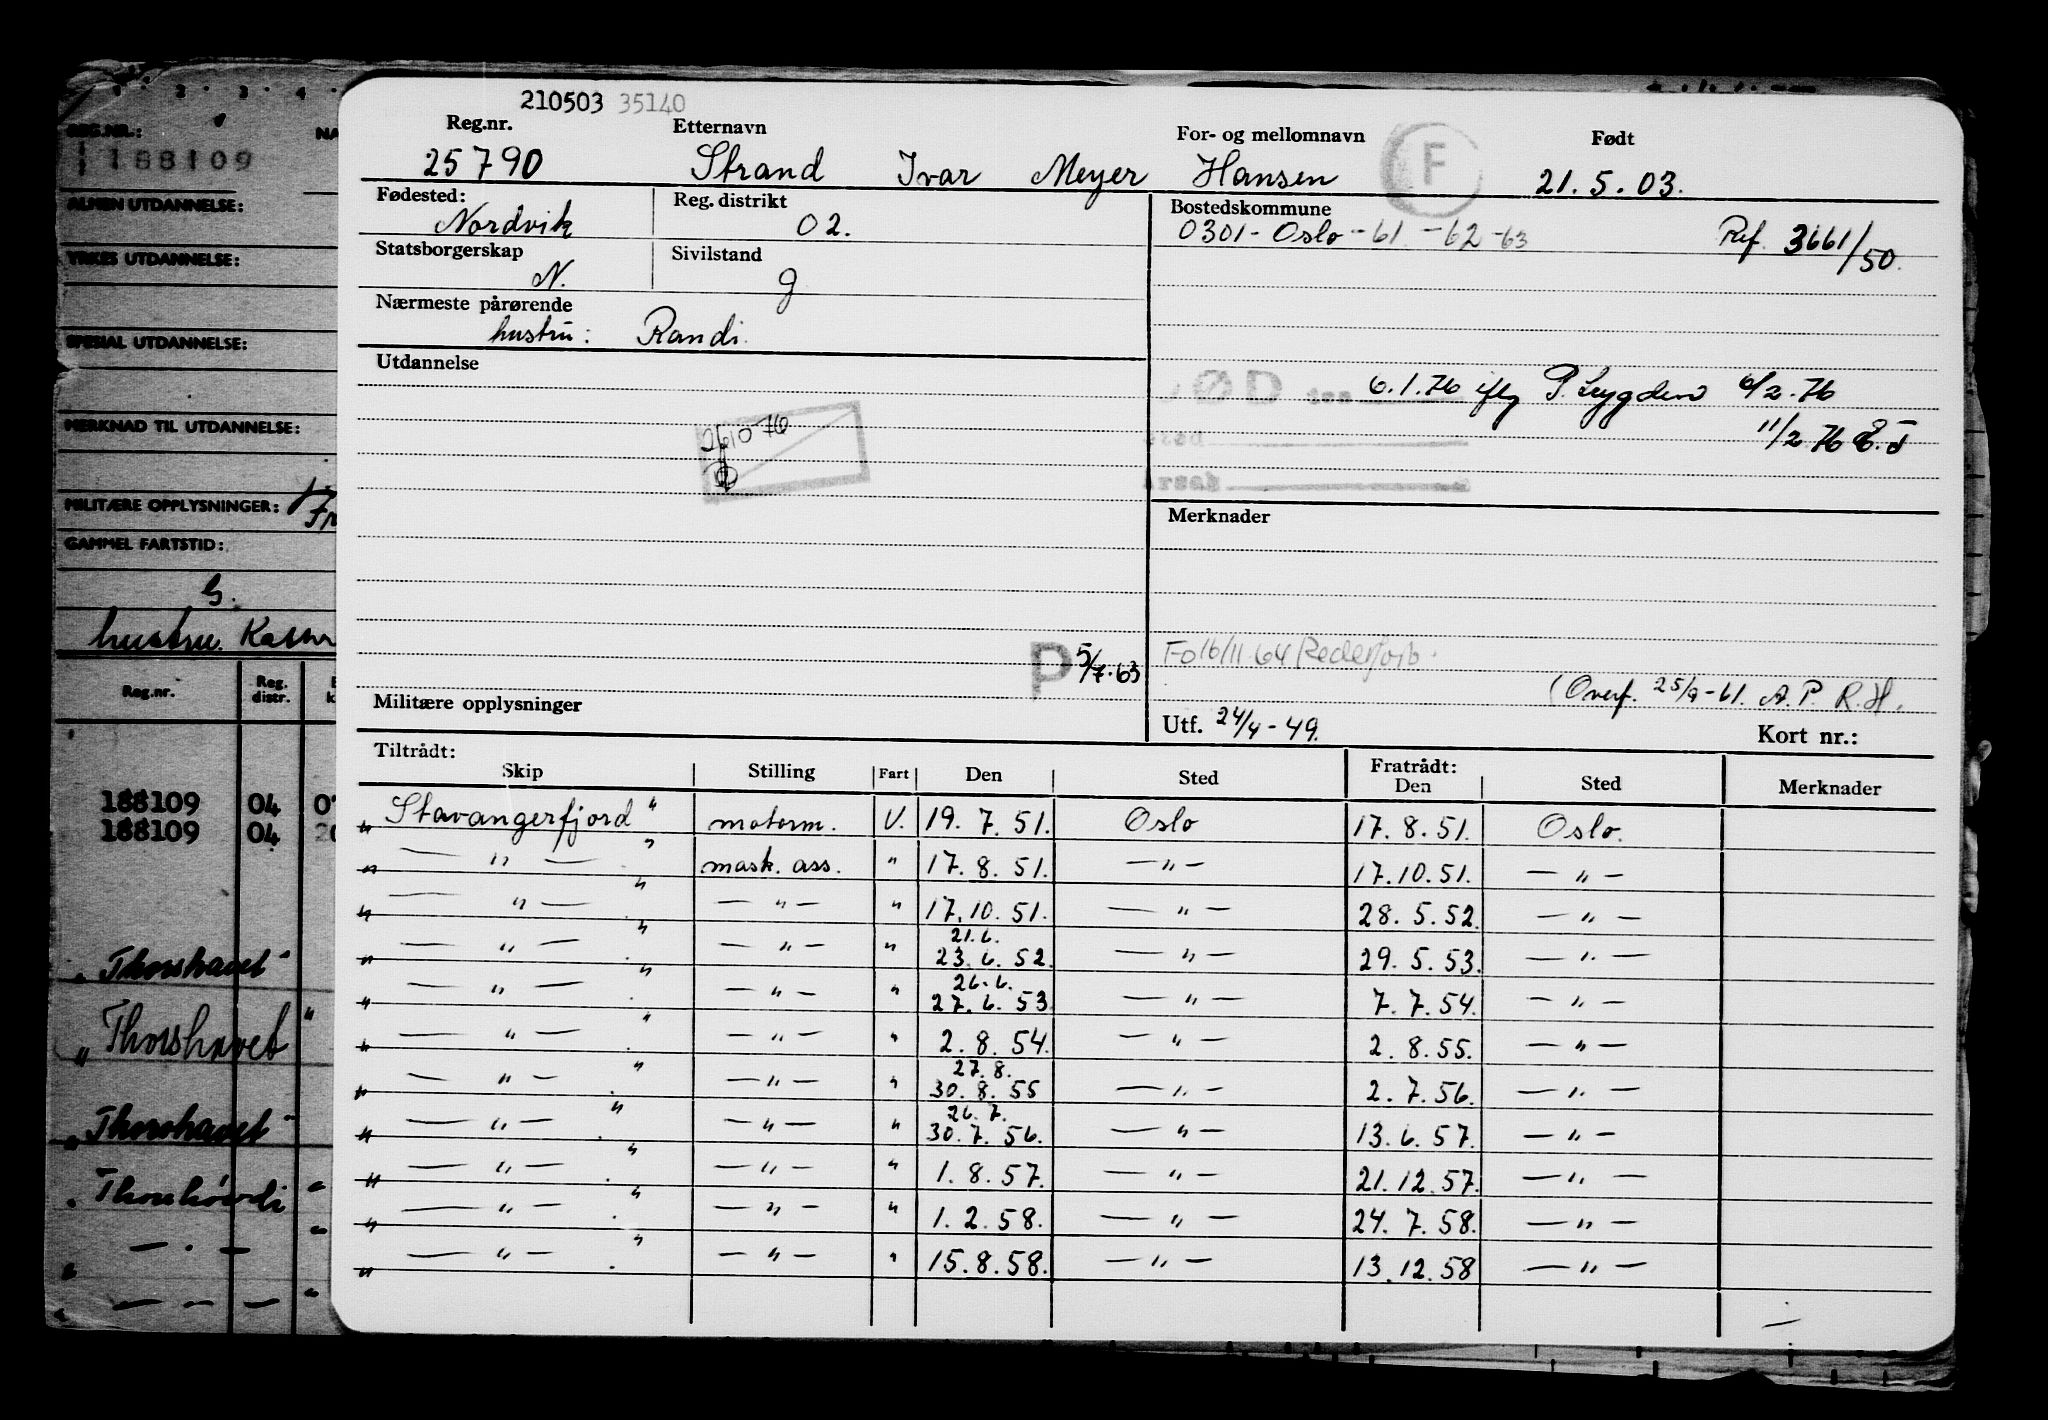 210503 35140
Reg.nr. Etternavn For- og mellomnavn Født
25790 Strand Ivar Meyer Hansen F 21. 5. 03.
Fødested: Reg. distrikt Bostedskommune
Nordvik 02. 0301 - Oslo - 61. - 62 - 63 Ref. 3661/50.
Statsborgerskap Sivilstand
N. g
Nærmeste pårørende
hustru: Randi.
Utdannelse
DØD den 6.1.76 iflg 6/2.76
11/2.76
Årsak
Merknader
P 5/7.63
Fo 16/11.64 Rederforb.
(Overf. 25/9-61. A.P. R.H.
Militære opplysninger Utf. 24/4-49. Kort nr.:
Tiltrådt: Fratrådt:
Skip Stilling Fart Den Sted Den Sted Merknader
" Stavangerfjord " motorm. V. 19. 7. 51. Oslo 17. 8. 51. Oslo.
" — " — " mask. ass. " 17. 8. 51. — " — 17. 10. 51. — " —
" — " — " — " — " 17. 10. 51. — " — 28. 5. 52. — " —
21. 6.
" — " — " — " — " 23. 6. 52. — " — 29. 5. 53. — " —
26. 6.
" — " — " — " — " 27. 6. 53 — " — 7. 7. 54. — " —
" — " — " — " — " 2. 8. 54. — " — 2. 8. 55. — " —
27. 8.
" — " — " — " — " 30. 8. 55 — " — 2. 7. 56. — " —
26. 7.
" — " — " — " — " 30. 7. 56. — " — 13. 6. 57. — " —
" — " — " — " — " 1. 8. 57. — " — 21. 12. 57. — " —
" — " — " — " — " 1. 2. 58. — " — 24. 7. 58. — " —
" — " — " — " — " 15. 8. 58. — " — 13. 12. 58 — " —
1 2 3 4
REG.NR.: NA
188109
ALMEN UTDANNELSE:
YRKES UTDANNELSE:
SPESIAL UTDANNELSE:
MERKNAD TIL UTDANNELSE:
MILITÆRE OPPLYSNINGER:
GAMMEL FARTSTID:
G.
hustru.
Reg.nr. Reg. distr.
188109 04
188109 04
"Thorshavet"
"Thorshavet"
"Thorshavet"
"Thorshövdi"
— " —
— — —